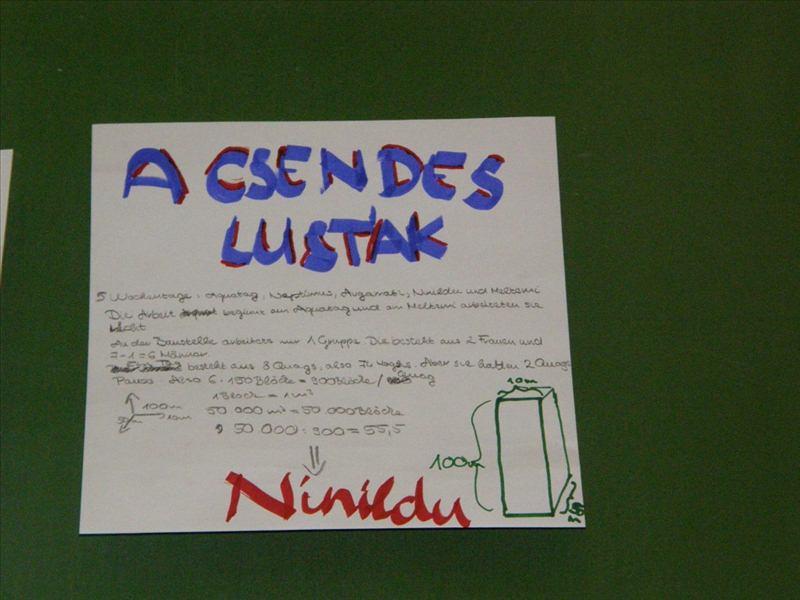 A CSENDES
LUSTAK
5 Wochentage: Aquatag, Neptimus, Augamati, Ninildu und Meltemi
Die Arbeit beginnt am Aquatag und am Meltemi arbeiteten sie
nicht
An der Baustelle arbeiters nur 1 Gruppe. Die besteht aus 2 Frauen und
7-1=6 Männer.
besteht aus 8 Quags, also 72 Wogs. Aber sie hatten 2 Quags
Pause Also 6 · 150 Blöcke = 900 Blöcke / Quag
1 Block = 1m³
50 000 m³ = 50.000 Blöcke
50 000 : 900 = 55,5
100m
10m
⇓
Ninildu
10m
100m
m